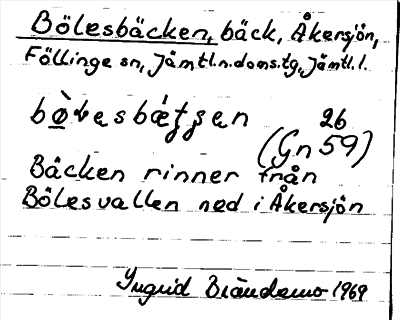 Bölesbäcken, bäck, Åkersjön,
Föllinge sn, Jämtl.n.doms.tg, Jämtl.l.
26
(Gn 59)
Bäcken rinner från
Bölesvallen ned i Åkersjön
Yngvid Brändemo 1969